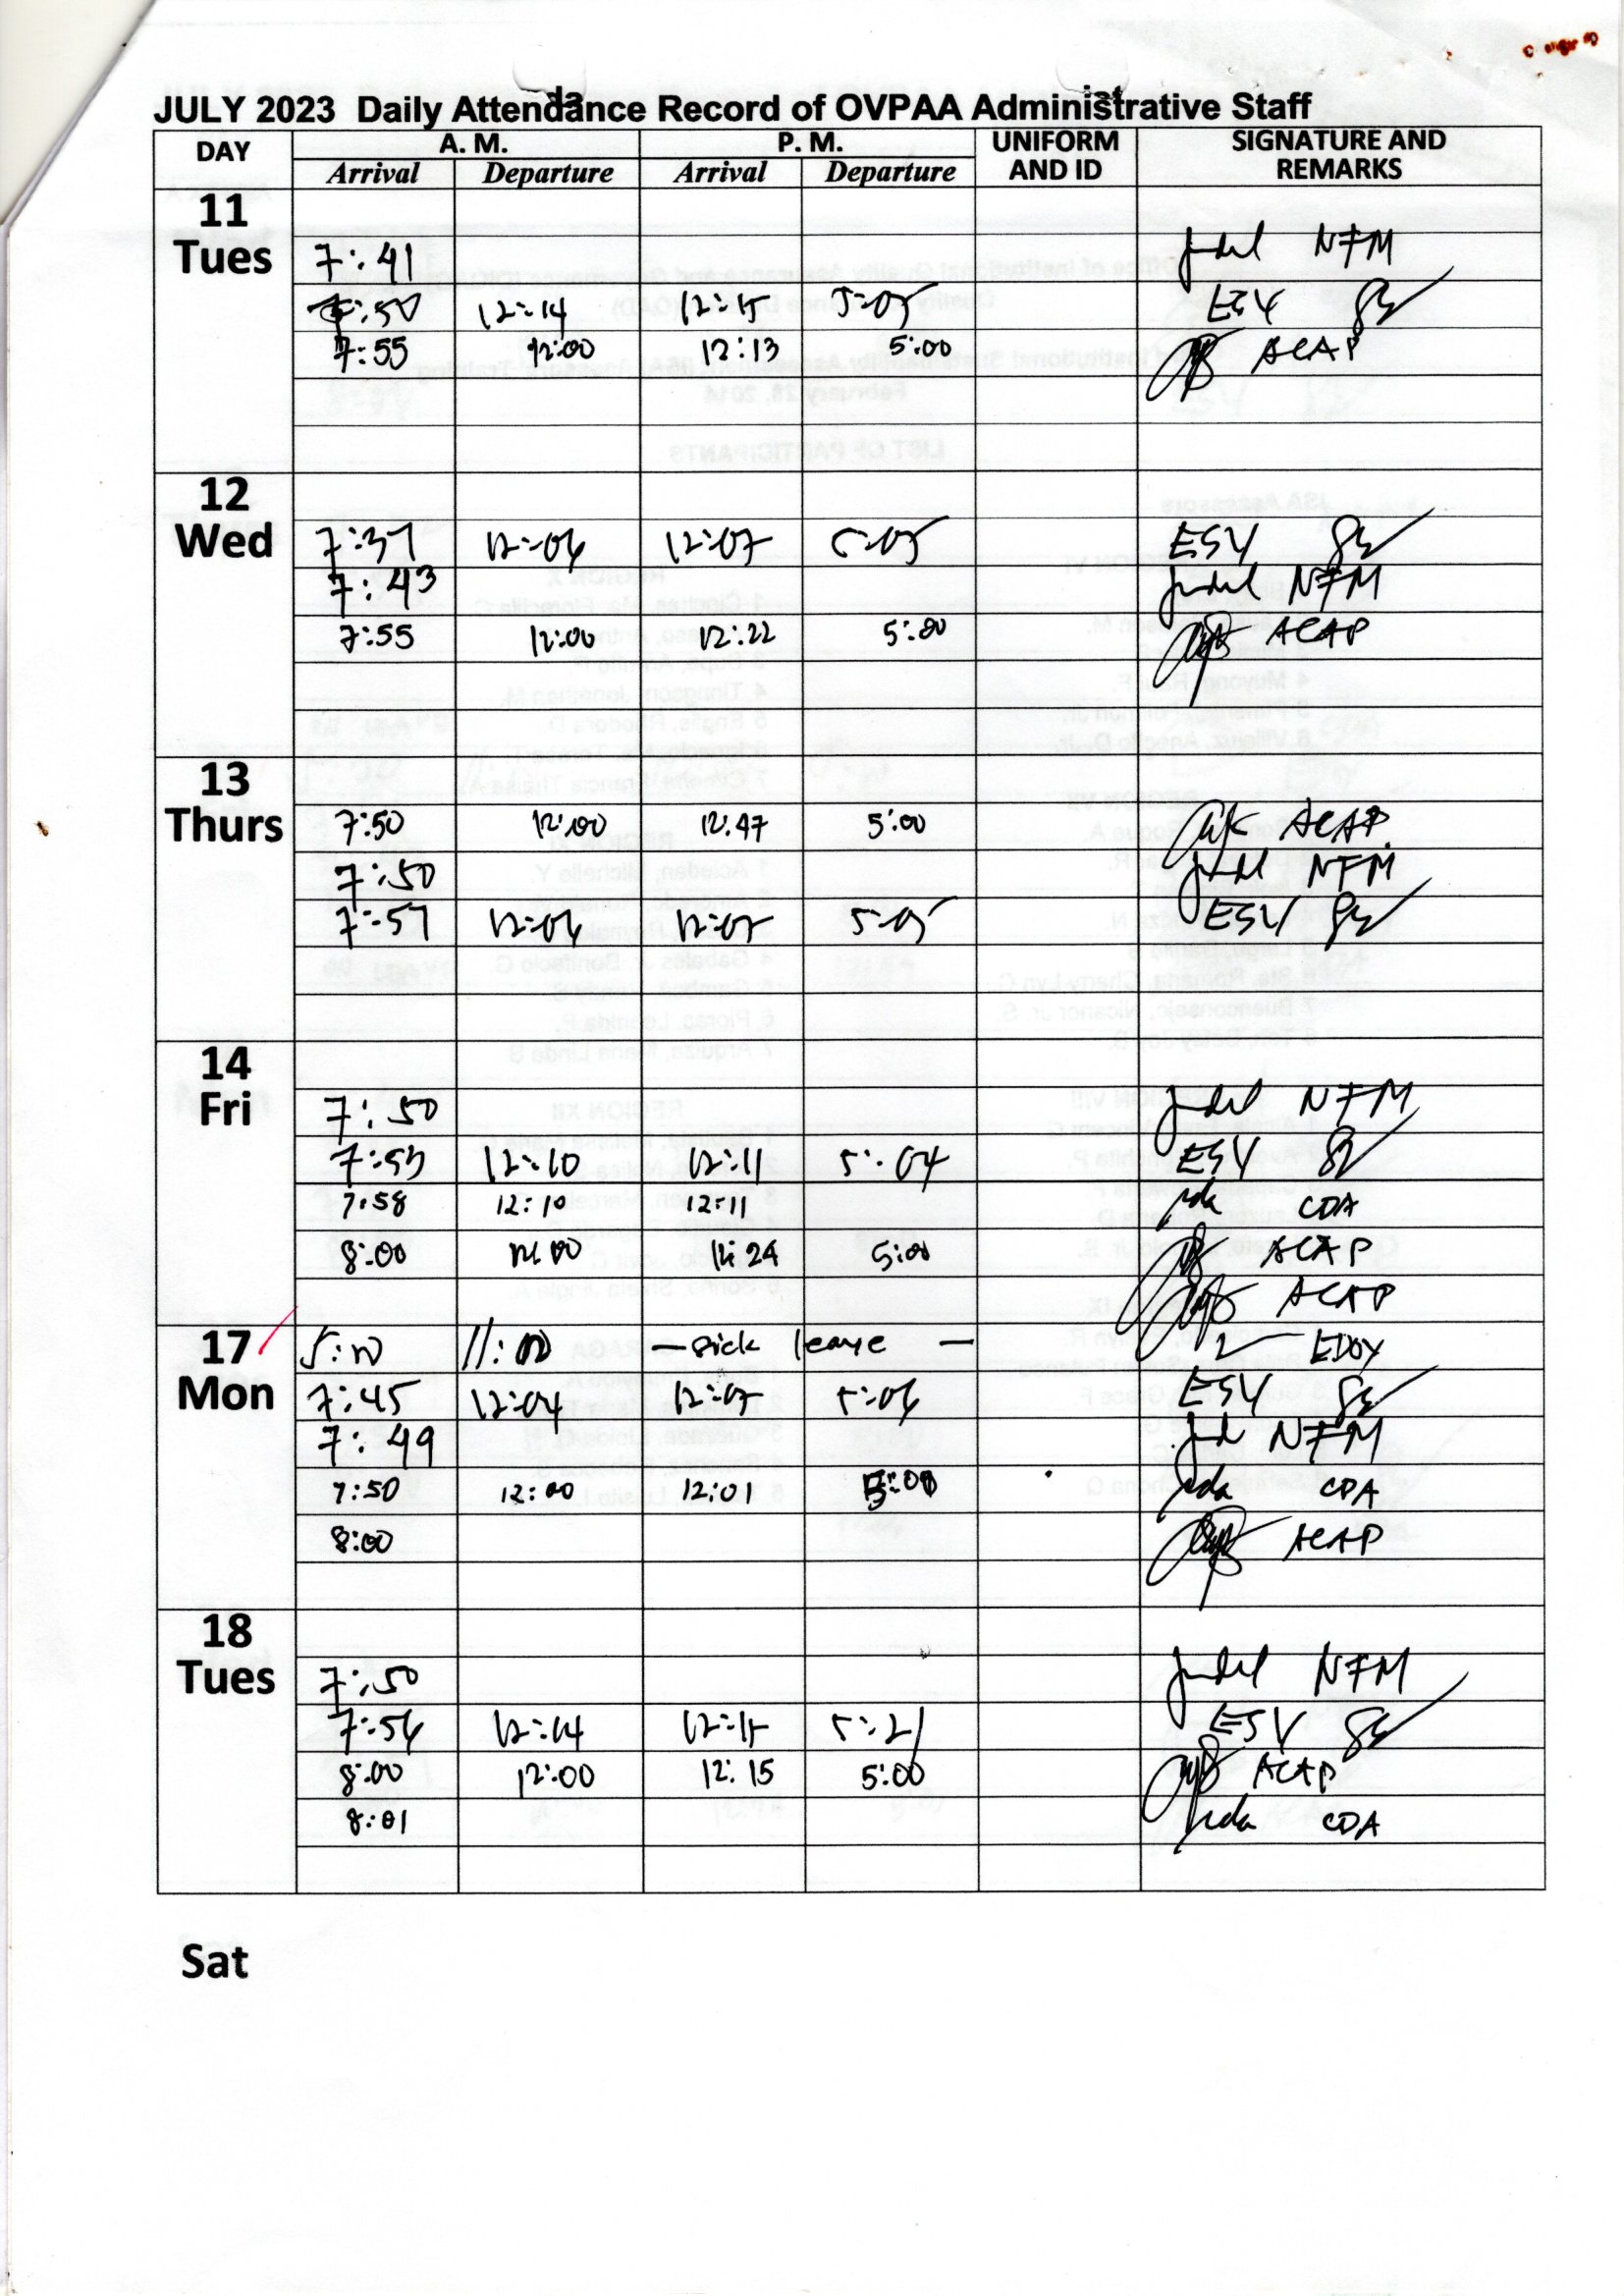 JULY 2023 Daily Attendance Record of OVPAA Administrative Staff
DAY A. M. P. M. UNIFORM AND ID SIGNATURE AND REMARKS
Arrival Departure Arrival Departure
11 Tues
7:41 NFM
7:50 12:14 12:15 5:05 ESV
7:55 12:00 12:13 5:00 ACAP
12 Wed
7:37 12:06 12:07 5:05 ESV
7:43 NFM
7:55 12:00 12:22 5:00 ACAP
13 Thurs
7:50 12:00 12:47 5:00 ACAP
7:50 NFM
7:57 12:06 12:07 5:05 ESV
14 Fri
7:50 NFM
7:53 12:10 12:11 5:04 ESV
7:58 12:10 12:11 CDA
8:00 12:00 12:24 5:00 ACAP
ACAP
17 Mon
5:00 11:00 - sick leave - EDOY
7:45 12:04 12:05 5:06 ESV
7:49 NFM
7:50 12:00 12:01 5:00 CDA
8:00 ACAP
18 Tues
7:50 NFM
7:56 12:14 12:15 5:21 ESV
8:00 12:00 12:15 5:00 ACAP
8:01 CDA
Sat